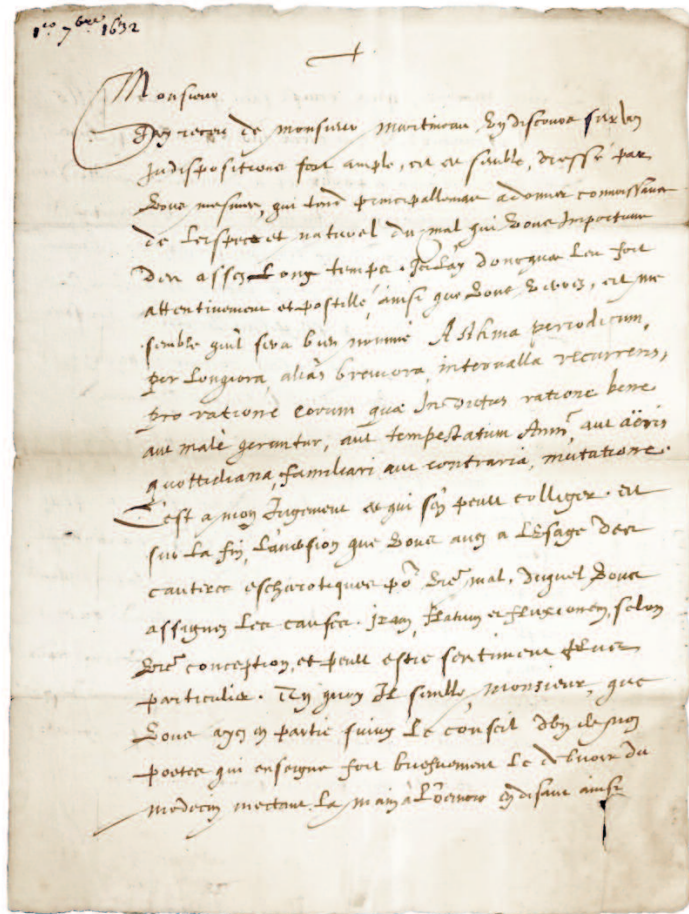 1er 7bre 1632
Monsieur
J'ay receu de monsieur Martineau un discours sur les
Indispositions fort ample, et ce semble, dressé par
vous mesmes, qui tend principallement a donner connoissance
de l'espece et naturel du mal qui vous Importune
des assez Long temps. Je l'ay doncques leu fort
attentivement et postillé ainsi que vous verrez, et me
semble quil sera bien nommé Asthma periodicum,
per Longiora, aliàs breviora, intervalla recurrens,
pro ratione eorum quæ In victus ratione bene
aut malè geruntur, aut tempestatum Anni, aut aëris
quottidiana, familiari aut contraria, mutatione.
C'est a mon Jugement ce qui s'en peult colliger. Et
sur la fin, L'aversion que vous avez a L'usage des
cauteres escharotiques po.r vre mal. Duquel vous
assignez Les causes. flatum et fluxionem, selon
vre conception, et peult estre sentiment
particulier. En quoy Il semble, Monsieur, que
vous ayez en partie suivy Le conseil d'un de nos
poetes qui enseigne fort briefvement Le debvoir du
medecin mectant La main à L'oeuvre en disant ainsi